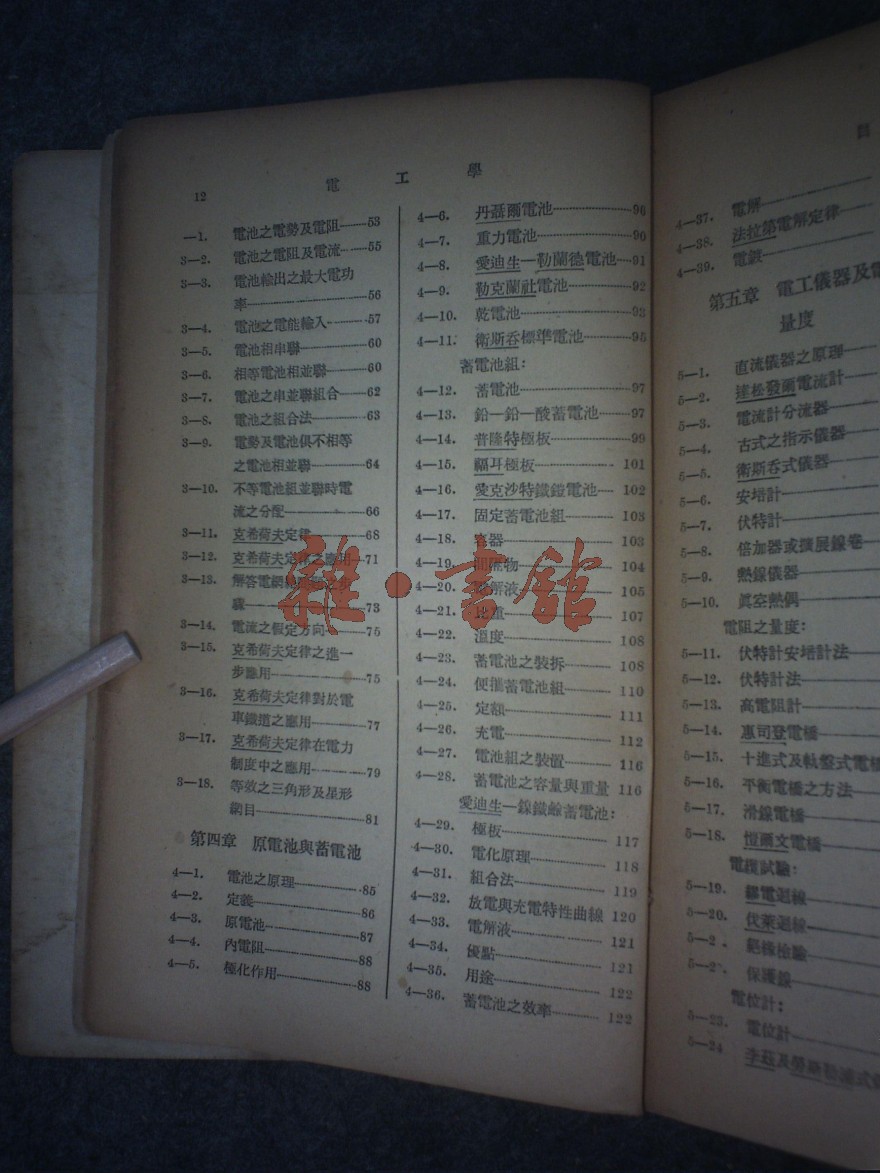 12
電工學
—1. 電池之電勢及電阻——53
3—2. 電池之電阻及電流——55
3—3. 電池輸出之最大電功
率——56
3—4. 電池之電能輸入——57
3—5. 電池相串聯——60
3—6. 相等電池相並聯——60
3—7. 電池之串並聯組合——62
3—8. 電池之組合法——63
3—9. 電勢及電池俱不相等
之電池相並聯——64
3—10. 不等電池組並聯時電
流之分配——66
3—11. 克希荷夫定律——68
3—12. 克希荷夫定律之應用—71
3—13. 解答電網
——73
3—14. 電流之假定方向——75
3—15. 克希荷夫定律之進一
步應用——75
3—16. 克希荷夫定律對於電
車鐵道之應用——77
3—17. 克希荷夫定律在電力
制度中之應用——79
3—18. 等效之三角形及星形
網目——81
第四章 原電池與蓄電池
4—1. 電池之原理——85
4—2. 定義——86
4—3. 原電池——87
4—4. 內電阻——88
4—5. 極化作用——88
4—6. 丹聶爾電池——90
4—7. 重力電池——90
4—8. 愛迪生—勒蘭德電池—91
4—9. 勒克蘭社電池——92
4—10. 乾電池——93
4—11. 衛斯吞標準電池——95
蓄電池組:
4—12. 蓄電池——97
4—13. 鉛—鉛—酸蓄電池——97
4—14. 普隆特極板——99
4—15. 福耳極板——101
4—16. 愛克沙特鐵鎧電池—102
4—17. 固定蓄電池組——103
4—18. 容器——103
4—19. 物——104
4—20. 電解液——105
4—21. 比重——107
4—22. 溫度——108
4—23. 蓄電池之裝拆——108
4—24. 便攜蓄電池組——110
4—25. 定額——111
4—26. 充電——112
4—27. 電池組之裝置——116
4—28. 蓄電池之容量與重量 116
愛迪生—鎳鐵鹼蓄電池:
4—29. 極板——117
4—30. 電化原理——118
4—31. 組合法——119
4—32. 放電與充電特性曲線 120
4—33. 電解液——121
4—34. 優點——121
4—35. 用途——122
4—36. 蓄電池之效率——122
目
4—37. 電解——
4—38. 法拉第電解定律——
4—39. 電鍍——
第五章 電工儀器及電
量度
5—1. 直流儀器之原理——
5—2. 達松發爾電流計——
5—3. 電流計分流器——
5—4. 古式之指示儀器——
5—5. 衛斯吞式儀器——
5—6. 安培計——
5—7. 伏特計——
5—8. 倍加器或擴展線卷—
5—9. 熱線儀器——
5—10. 眞空熱偶——
電阻之量度:
5—11. 伏特計安培計法——
5—12. 伏特計法——
5—13. 高電阻計——
5—14. 惠司登電橋——
5—15. 十進式及軌盤式電橋
5—16. 平衡電橋之方法——
5—17. 滑線電橋——
5—18. 愷爾文電橋——
電纜試驗:
5—19. 繆電迴線——
5—20. 伏萊迴線——
5—2. 絕緣檢驗——
5—2. 保護線——
電位計:
5—23. 電位計——
5—24 李玆及勞
雜·書館